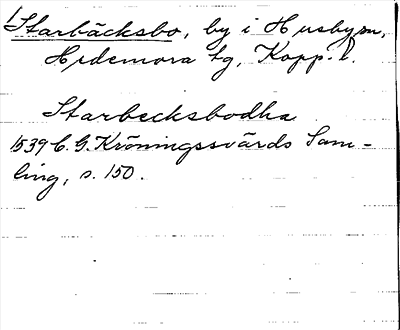 Starbäcksbo, by i Husby sn,
Hedemora tg, Kopp. l.
Starbecksbodha
1539 C. G. Kröningssvärds Sam-
ling, s. 150.